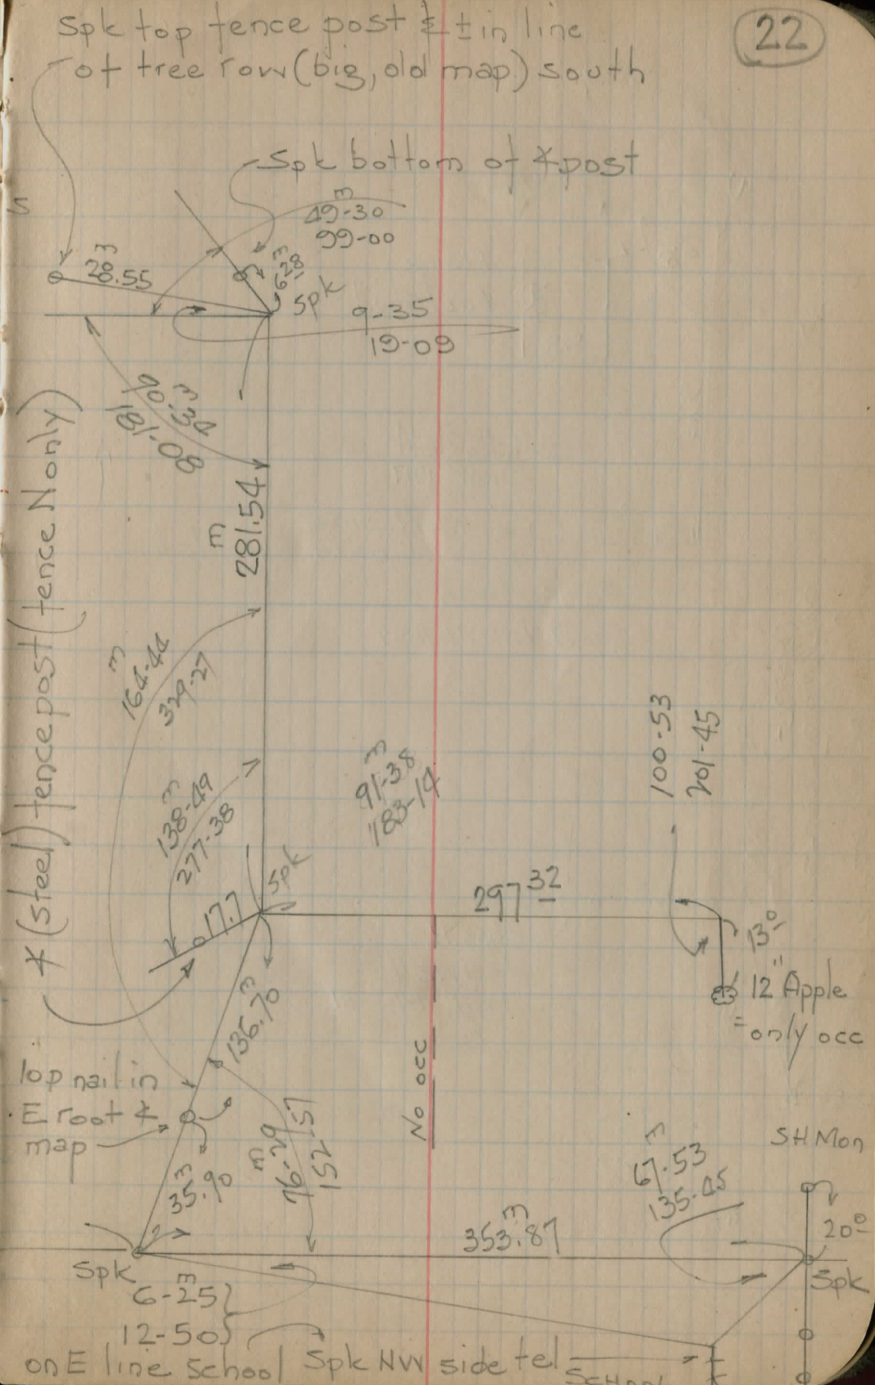 22
Spk top fence post ± in line
of tree row (big, old map) south
Spk bottom of post
S
m
49-30
99-00
m
28.55
m
6.28
Spk
9-35
19-09
m
90-34
181-08
m
281.54
(steel) fence post (fence N only)
m
164-44
329-27
m
138-49
277-38
m
91-38
183-14
100-53
201-45
Spk
17.7
297 32
13 0
12" Apple
= only occ
m
136.70
No occ
Top nail in
E root
map
m
35.90
m
76-29
152-57
m
67-53
135-45
SH Mon
20 0
m
353.87
Spk
Spk
m
6-25
12-50
on E line School
Spk NW side tel
School